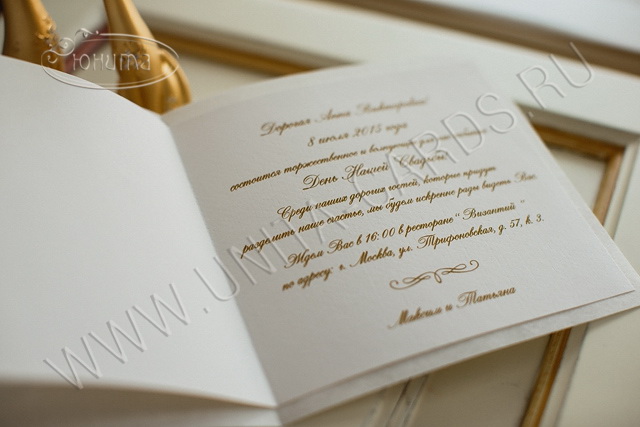 Юнита
Дорогая Анна Викторовна!
8 июля 2015 года
состоится торжественное и волнующее
День Нашей Свадьбы!
Среди наших дорогих гостей, которые придут
разделить наше счастье, мы будем искренне рады видеть Вас.
Ждем Вас в 16:00 в ресторане "Византий"
по адресу: г. Москва, ул. Трифоновская, д. 57, к. 3.
Максим и Татьяна
WWW.UNITA-CARDS.RU